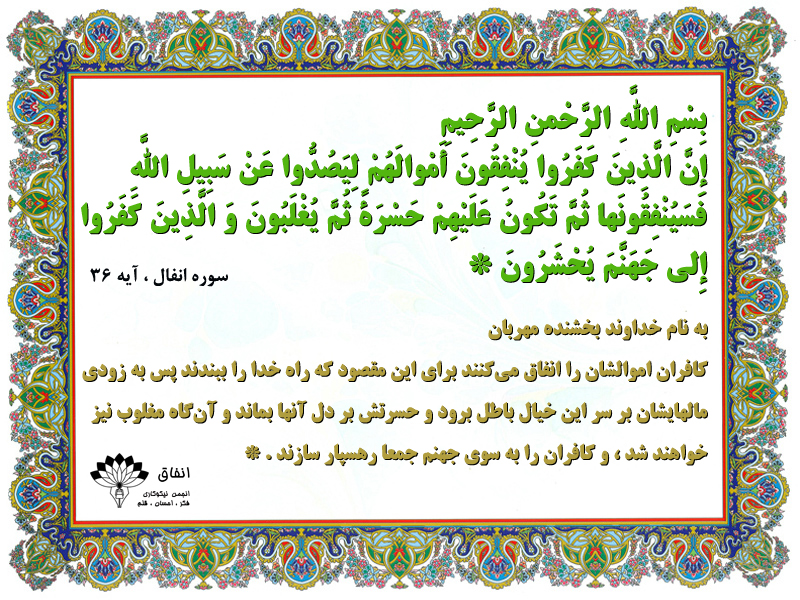 بِسْمِ اللَّهِ الرَّحْمنِ الرَّحِيمِ
إِنَّ الَّذِينَ كَفَرُوا يُنْفِقُونَ أَمْوالَهُمْ لِيَصُدُّوا عَنْ سَبِيلِ اللَّه
فَسَيُنْفِقُونَها ثُمَّ تَكُونُ عَلَيْهِمْ حَسْرَةً ثُمَّ يُغْلَبُونَ وَ الَّذِينَ كَفَرُوا
إِلى جَهَنَّمَ يُحْشَرُونَ *
سوره انفال ، آیه ۳۶
به نام خداوند بخشنده مهربان
کافران اموالشان را انفاق می‌کنند برای این مقصود که راه خدا را ببندند پس به زودی
مالهایشان بر سر این خیال باطل برود و حسرتش بر دل آنها بماند و آن‌گاه مغلوب نیز
خواهند شد ، و کافران را به سوی جهنم جمعا رهسپار سازند . *
انفاق
انجمن نیکوکاری
فکر ، احسان ، قلم